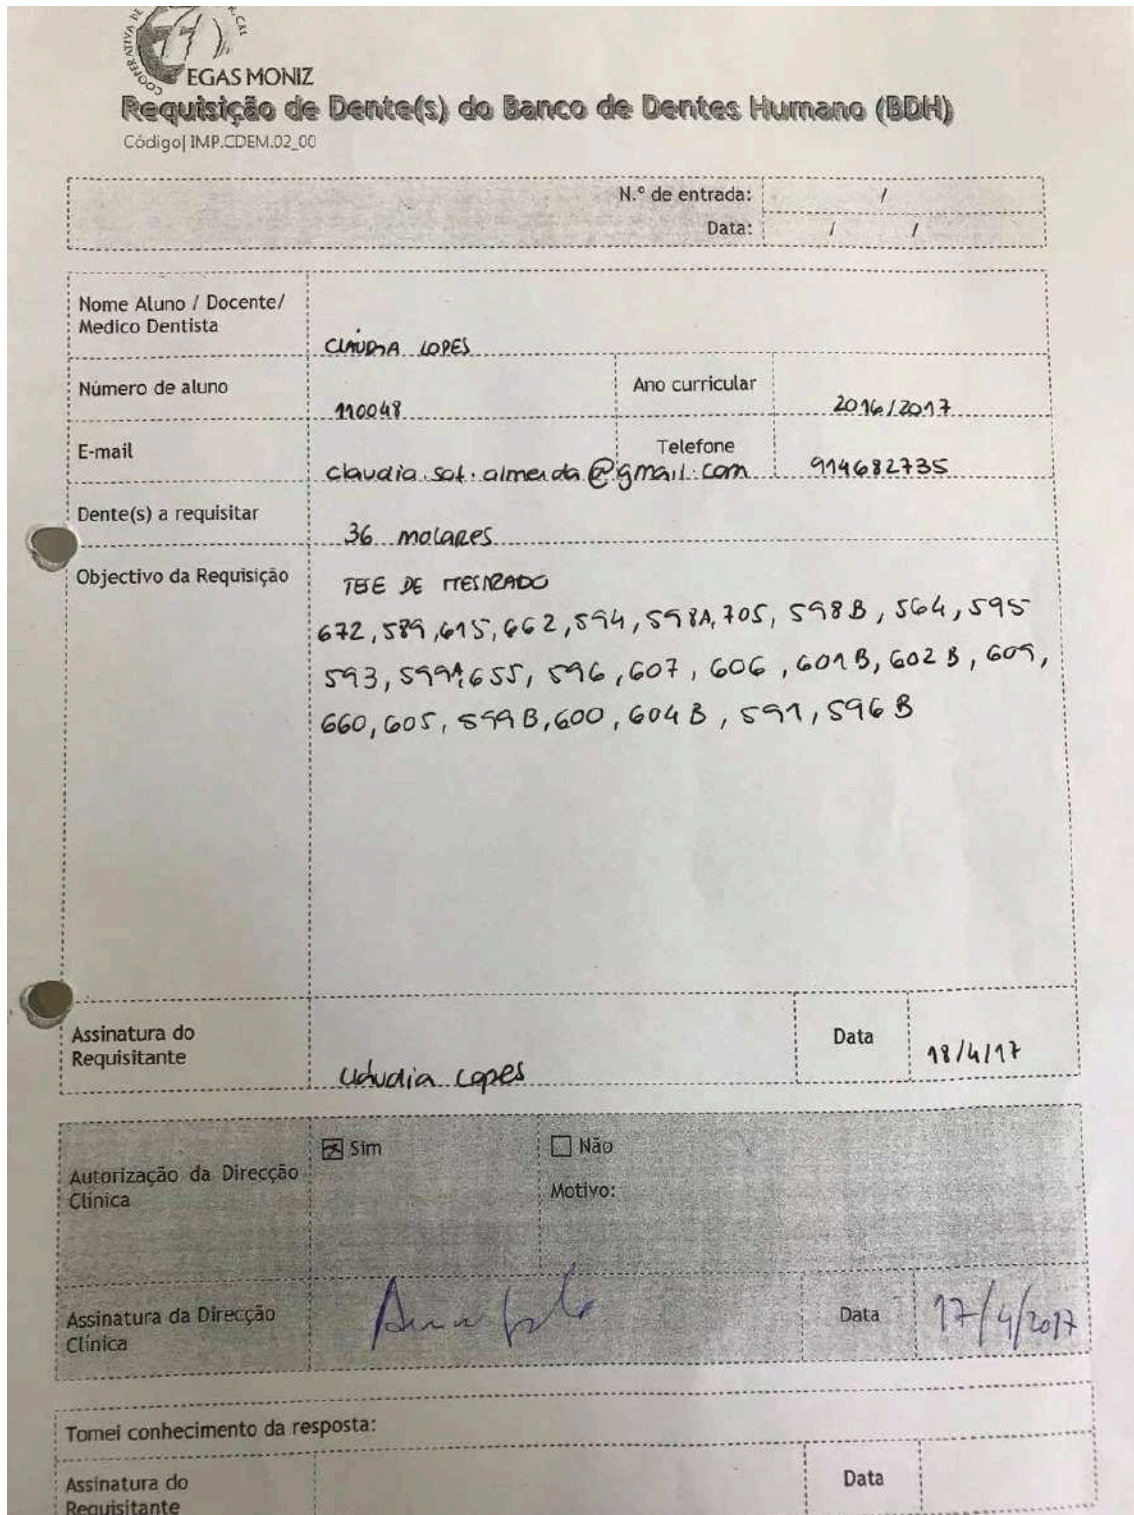 COOPERATIVA DE
EGAS MONIZ
Requisição de Dente(s) do Banco de Dentes Humano (BDH)
Código| IMP.CDEM.02_00
N.º de entrada: /
Data: / /
Nome Aluno / Docente/
Medico Dentista
CLÁUDIA LOPES
Número de aluno
110048
Ano curricular
2016/2017
E-mail
claudia.sof.almeida@gmail.com
Telefone
914682735
Dente(s) a requisitar
36 molares
Objectivo da Requisição
TESE DE MESTRADO
672, 589, 615, 662, 594, 598A, 705, 598B, 564, 595
593, 599A, 655, 596, 607, 606, 601B, 602B, 609,
660, 605, 599B, 600, 604B, 591, 596B
Assinatura do
Requisitante
Cláudia Lopes
Data
18/4/17
Autorização da Direcção
Clínica
Sim
Não
Motivo:
Assinatura da Direcção
Clínica
Data
17/4/2017
Tomei conhecimento da resposta:
Assinatura do
Requisitante
Data